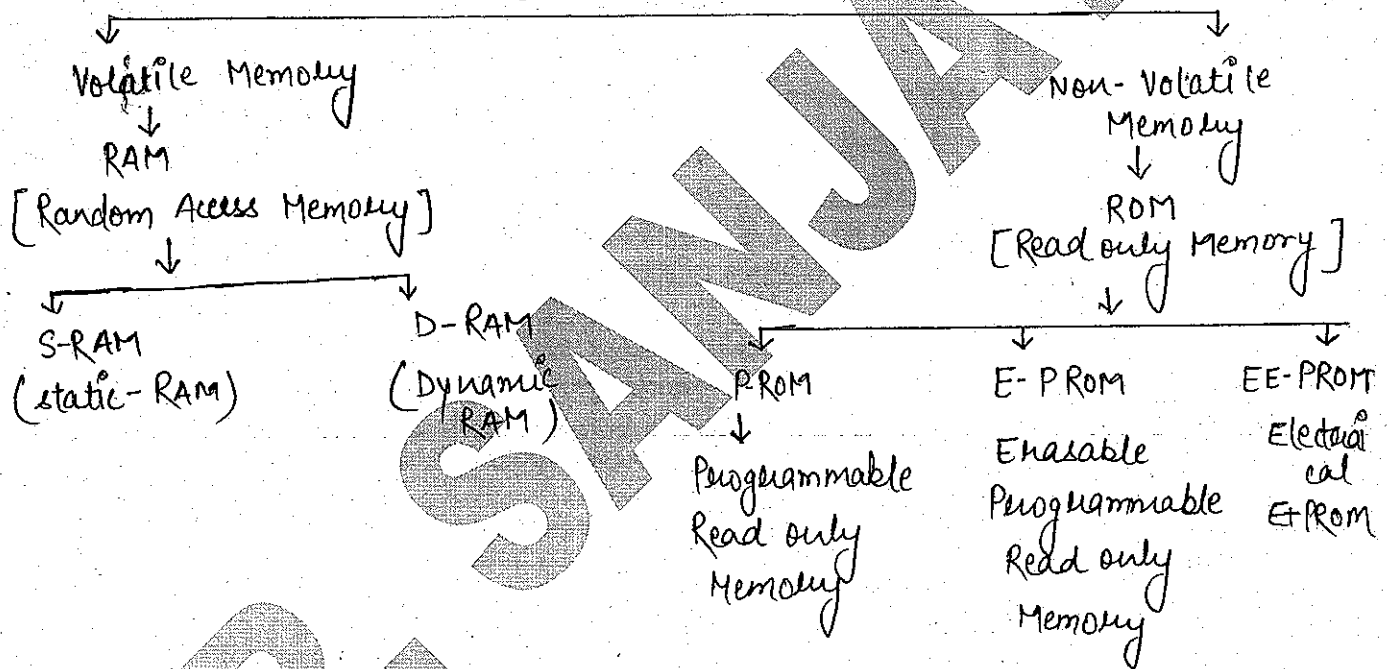 Volatile Memory
RAM
[Random Access Memory]
S-RAM
(static-RAM)
D-RAM
(Dynamic
RAM)
Non-Volatile
Memory
ROM
[Read only Memory]
P-ROM
Programmable
Read only
Memory
E-PROM
Erasable
Programmable
Read only
Memory
EE-PROM
Electri
cal
E-PROM
SANJA